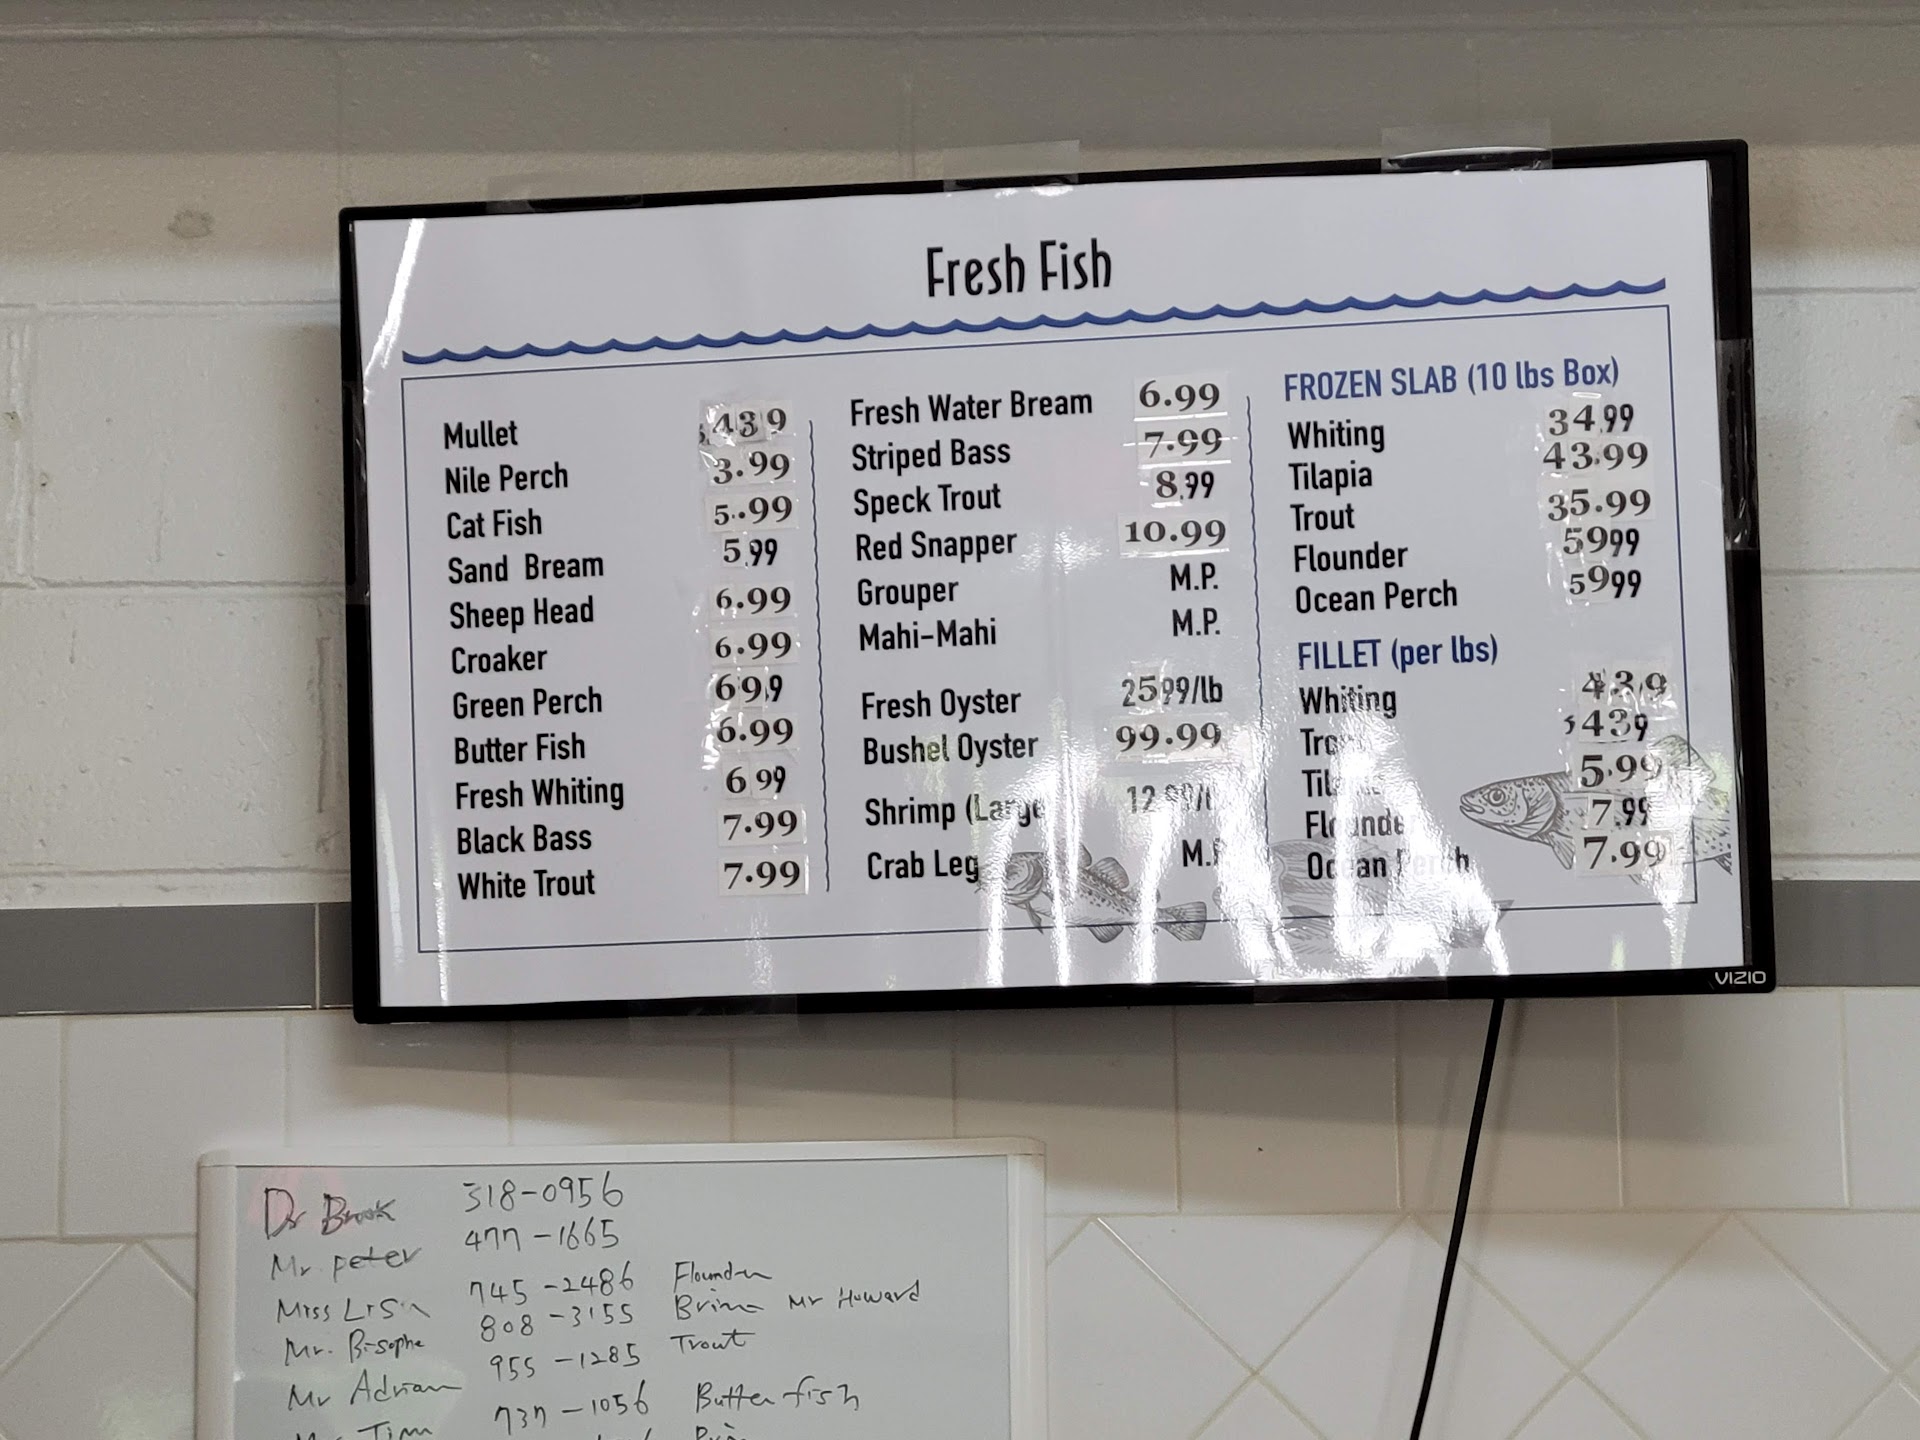 Fresh Fish
Mullet $.439
Nile Perch 3.99
Cat Fish 5.99
Sand Bream 5.99
Sheep Head 6.99
Croaker 6.99
Green Perch 69.9
Butter Fish 6.99
Fresh Whiting 6 99
Black Bass 7.99
White Trout 7.99
Fresh Water Bream 6.99
Striped Bass 7.99
Speck Trout 8.99
Red Snapper 10.99
Grouper M.P.
Mahi-Mahi M.P.
Fresh Oyster 25.99/lb
Bushel Oyster 99.99
Shrimp (Large
Crab Leg M.P.
FROZEN SLAB (10 lbs Box)
Whiting 34.99
Tilapia 43.99
Trout 35.99
Flounder 5999
Ocean Perch 5999
FILLET (per lbs)
Whiting 43.9
Trout $439
Tilapia 5.99
Flounder 7.99
Ocean Perch 7.99
VIZIO
Dr Brook 318-0956
Mr. peter 477-1665
Miss Lisa 745-2486 Flounder
Mr. 808-3155 Mr Howard
Mr Adrian 955-1285 Trout
Tim 737-1056 Butter fish